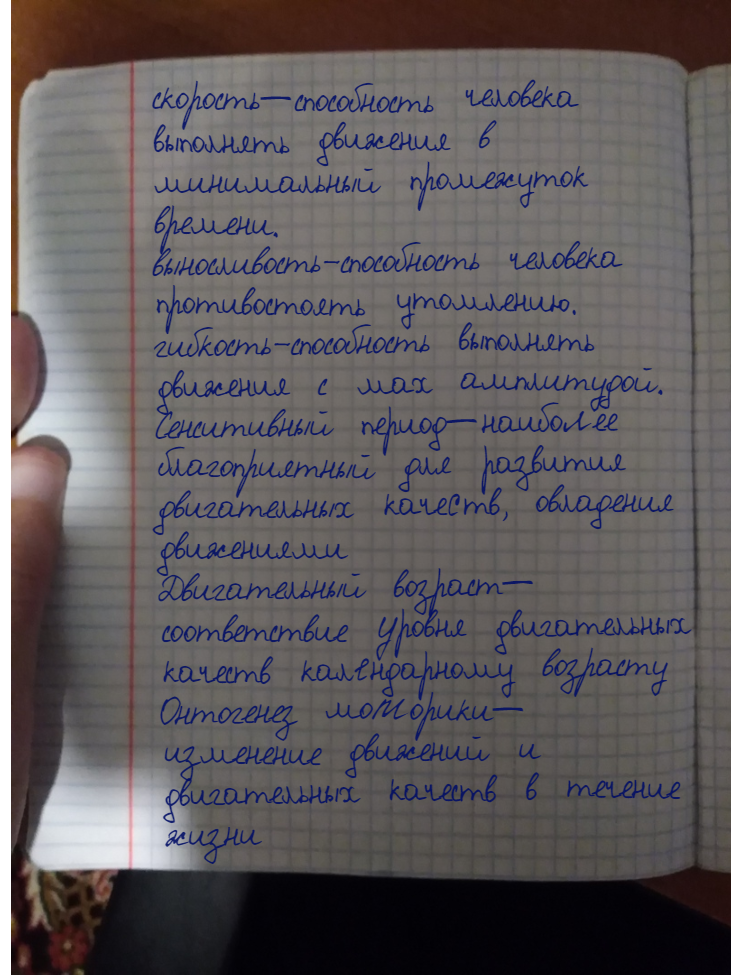 скорость—способность человека
выполнять движения в
минимальный промежуток
времени.
выносливость-способность человека
противостоять утомлению.
гибкость-способность выполнять
движения с мах амплитудой.
Сенситивный период—наиболее
благоприятный для развития
двигательных качеств, овладения
движениями
Двигательный возраст—
соответствие уровня двигательных
качеств календарному возрасту
Онтогенез моторики—
изменение движений и
двигательных качеств в течение
жизни